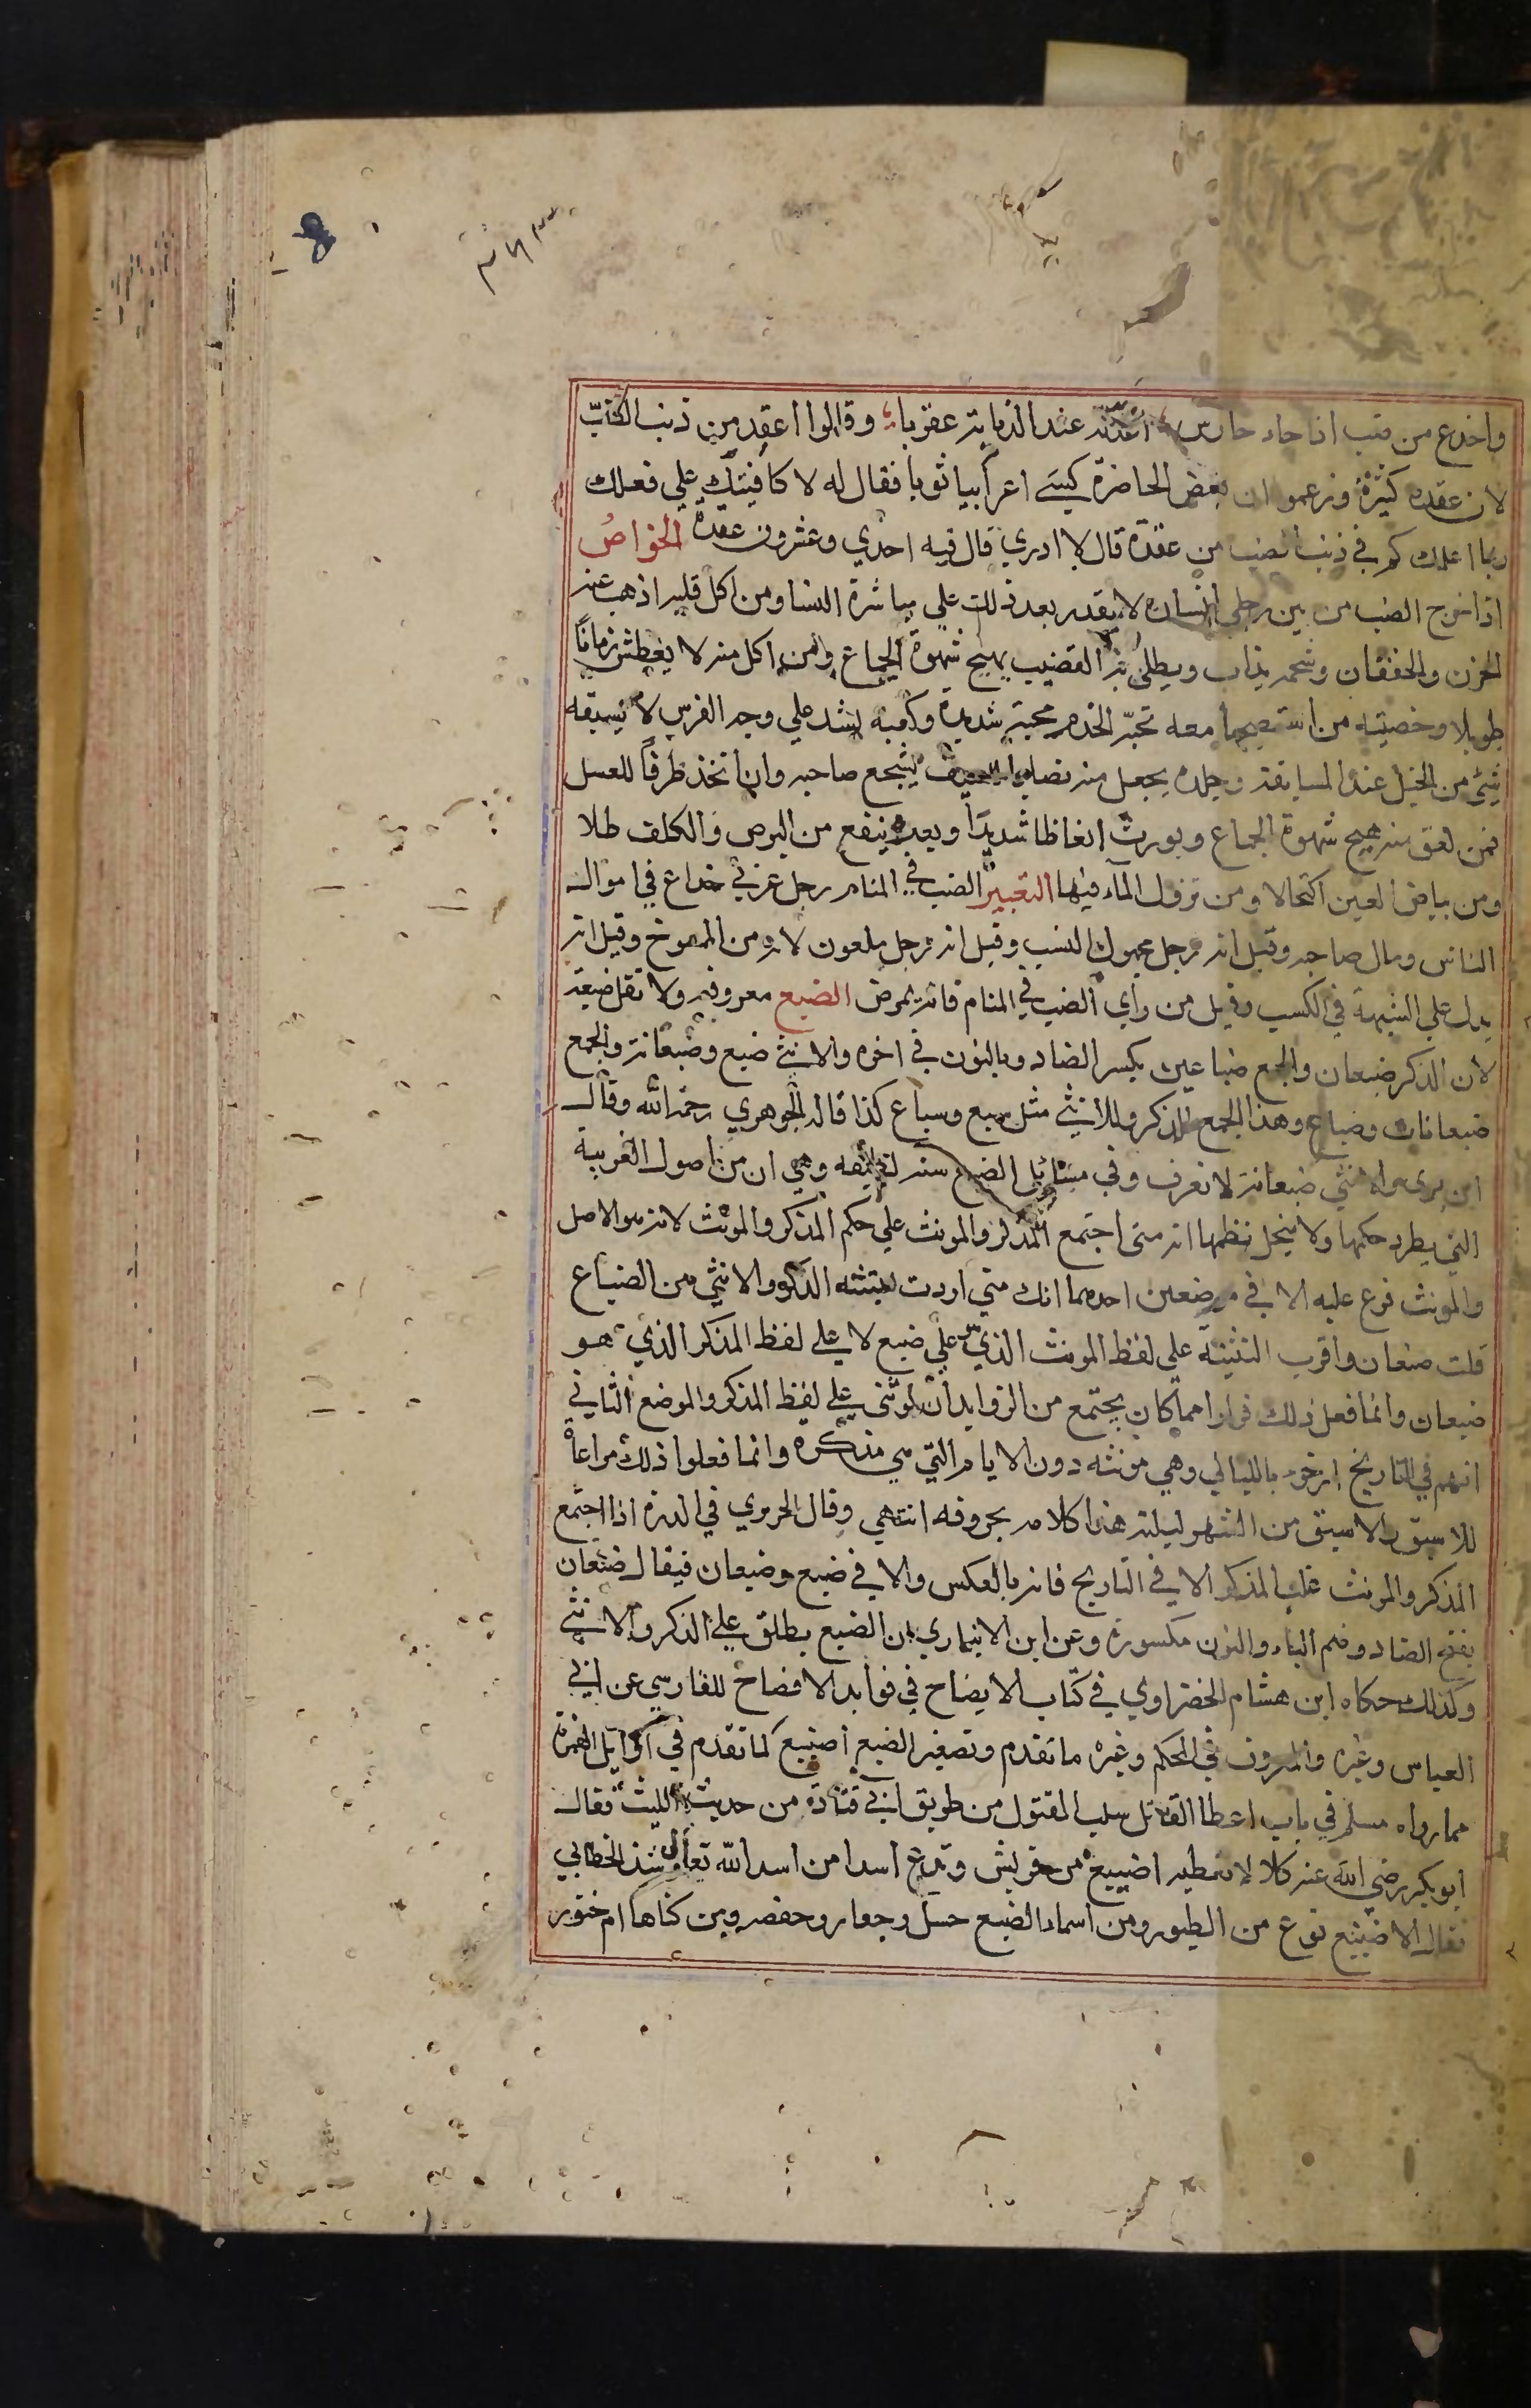 ٣٦٣
واخدع من ضب اذا جاء حارس اعد له عند الذبابة عقربا وقالوا اعقد من ذنب الضب
لان عقده كثيرة وزعموا ان بعض الحاضرة كسي اعرابيا ثوبا فقال له لا كافيتك علي فعلك
بما اعلمك كم في ذنب الضب من عقدة قال لا ادري قال فيه احدي وعشرون عقدة الخواص
اذا خرج الضب من بين رجلي انسان لا يقدر بعد ذلك علي مباشرة النسا ومن اكل قلبه اذهب عنه
الحزن والخفقان وشحمه يذاب ويطلي به القضيب يهيج شهوة الجماع ومن اكل منه لا يعطش زمانا
طويلا وخصيته من استصحبها معه تحبه الخدم محبة شديدة وكعبه يشد علي وجه الفرس لا يسبقه
شيئ من الخيل عند المسابقة وجلده يجعل منه نصاب السيف يشجع صاحبه وان اتخذ ظرفا للعسل
فمن لعق منه هيج شهوة الجماع ويورث انعاظا شديدا وبعره ينفع من البرص والكلف طلا
ومن بياض العين اكتحالا ومن نزول الماء فيها التعبير الضب في المنام رجل عربي خداع في اموال
الناس ومال صاحبه وقيل انه رجل مجهول النسب وقيل انه رجل ملعون لانه من الممسوخ وقيل انه
يدل علي الشبهة في الكسب وقيل من رأي الضب في المنام فانه يمرض الضبع معروفه ولا تقل ضبعة
لان الذكر ضبعان والجمع ضباعين بكسر الضاد وبالنون في اخره والانثي ضبع وضبعانة والجمع
ضبعانات وضباع وهذا الجمع للذكر وللانثي مثل سبع وسباع كذا قاله الجوهري رحمه الله وقال
ابن بري والانثي ضبعانة لا تعرف وفي مسائل الضبع مسئلة لطيفه وهي ان من اصول العربية
التي يطرد حكمها ولا ينحل نظمها انه متي اجتمع المذكر والمونث علي حكم المذكر والمونث لانه هو الاصل
والمونث فرع عليه الا في موضعين احدهما انك متي اردت تثنية الذكر والانثي من الضباع
قلت ضبعان واقرب التثنية علي لفظ المونث الذي علي ضبع لا علي لفظ المذكر الذي هو
ضبعان وانما فعل ذلك فرارا مما كان يجتمع من الزوايد ان لو ثني علي لفظ المذكر والموضع الثاني
انهم في التاريخ ارخوا بالليالي وهي مونثه دون الايام التي هي مذكره وانما فعلوا ذلك مراعاة
للاسبق والاسبق من الشهر ليلته هذا كلامه بحروفه انتهي وقال الحريري في الدرة اذا اجتمع
المذكر والمونث غلب المذكر الا في التاريخ فانه بالعكس والا في ضبع وضبعان فيقال ضبعان
بفتح الضاد وضم الباء والنون مكسورة وعن ابن الانباري ان الضبع يطلق علي الذكر والانثي
وكذلك حكاه ابن هشام الخضراوي في كتاب الايضاح في فوايد الافصاح للفارسي عن ابي
العباس وغيره والمعروف في المحكم وغيره ما تقدم وتصغير الضبع اضيبع كما تقدم في اوايل الهمزة
مما رواه مسلم في باب اعطا القاتل سلب المقتول من طريق ابي قتادة من حديث الليث فقال
ابو بكر رضي الله عنه كلا لا نعطيه اضيبع من قريش وتدع اسدا من اسد الله تعالي وشذ الخطابي
فقال الاضيبع نوع من الطيور ومن اسماء الضبع حسل وجعار وحفصه ومن كناها ام خنور